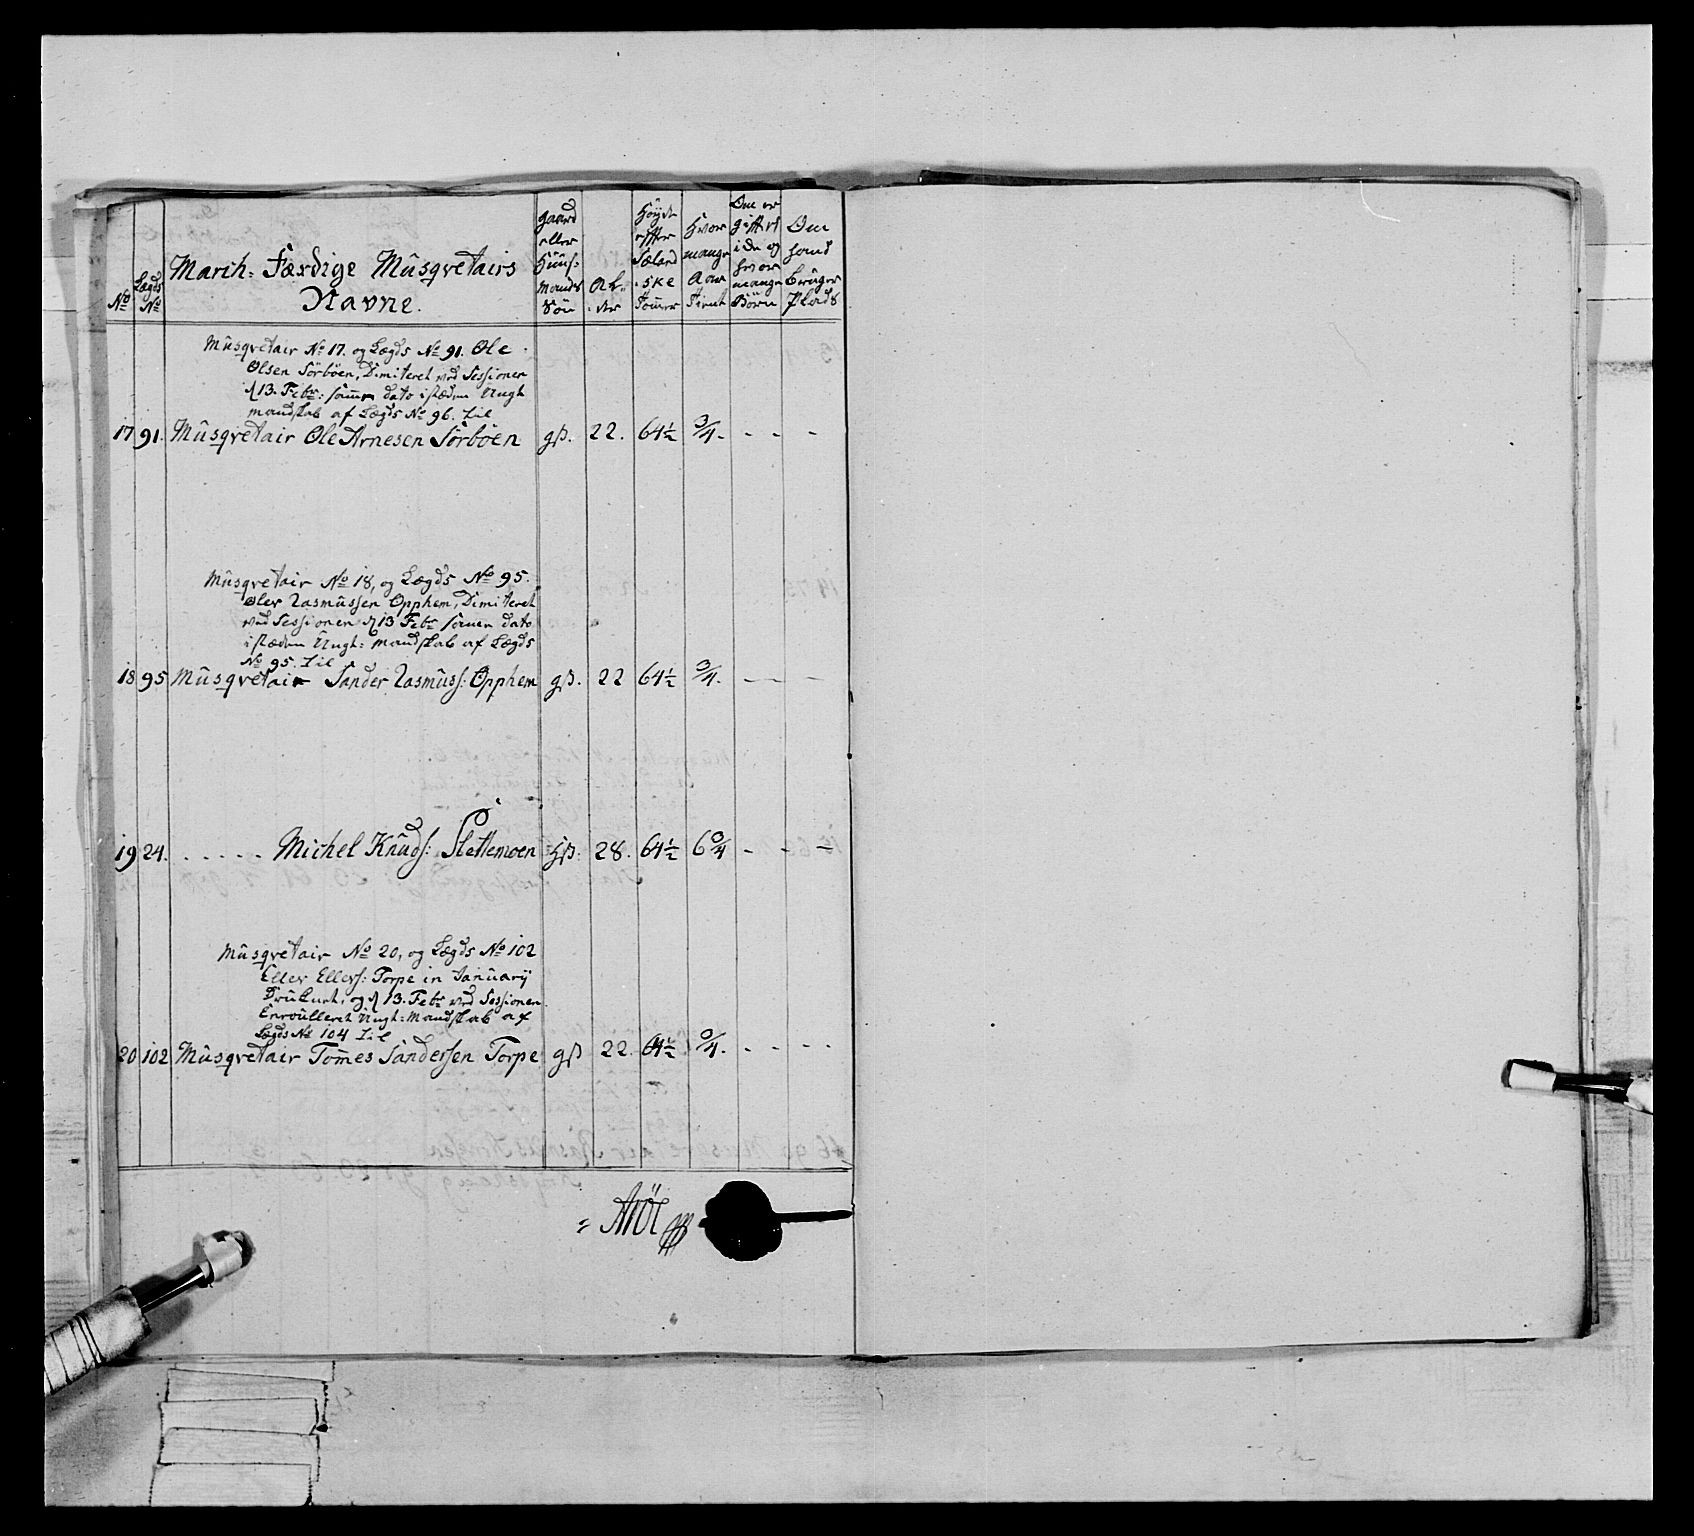 No
Lægds No
March: Færdige Musqvetairs
Navne.
Gaard eller Huus: Mands Søn
Al: der
Høyde effter Siælandske Tommer
Hvor mange Aar Tient
Om er gift el i de og hvor mange Børn
Om hand bruger Plads
Musqvetair No 17. og Lægds No 91. Ole
Olsen Sørbøen, Dimiteret ved Sessionen
d 13. Febr: samme dato istæden Ungt
mandskab af Lægds No 96. til
17 91. Musqvetair Ole Arnesen Sørbøen gß. 22. 64½ 3/4. - - -
Musqvetair No 18, og Lægds No 95.
Oler Rasmussen Opphem, Dimiteret
ved Sessionen d 13 Febr samme dato
istæden Ungt: mandskab af Lægds
No 95. til
18 95 Musqvetair Sander Rasmuss: Opphem gß. 22 64½ 0/4. - - -
19 24. . . . . . Michel Knuds: Slettemoen Hß. 28. 64½ 6 0/4 - - -
Musqvetair No 20, og Lægds No 102
Eller Ellers: Torpe in January
Druknet, og d 13. Febr ved Sessionen
Enroulleret Ungt: Mandskab af
Lægds No 104 til
20 102 Musqvetair Tommes Sandersen Torpe gß 22. 64½ 0/4. - - - -